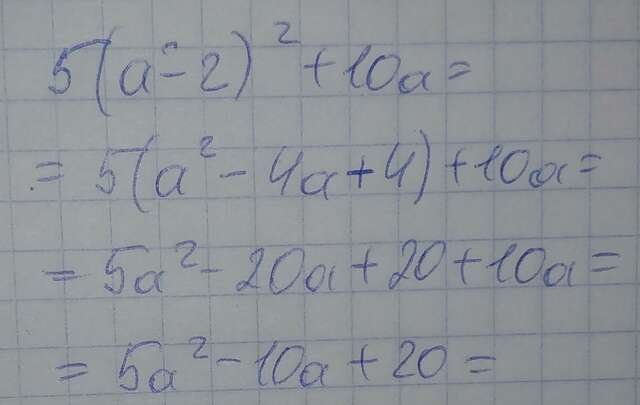 5(a-2)² + 10a =
= 5(a² - 4a + 4) + 10a =
= 5a² - 20a + 20 + 10a =
= 5a² - 10a + 20 =